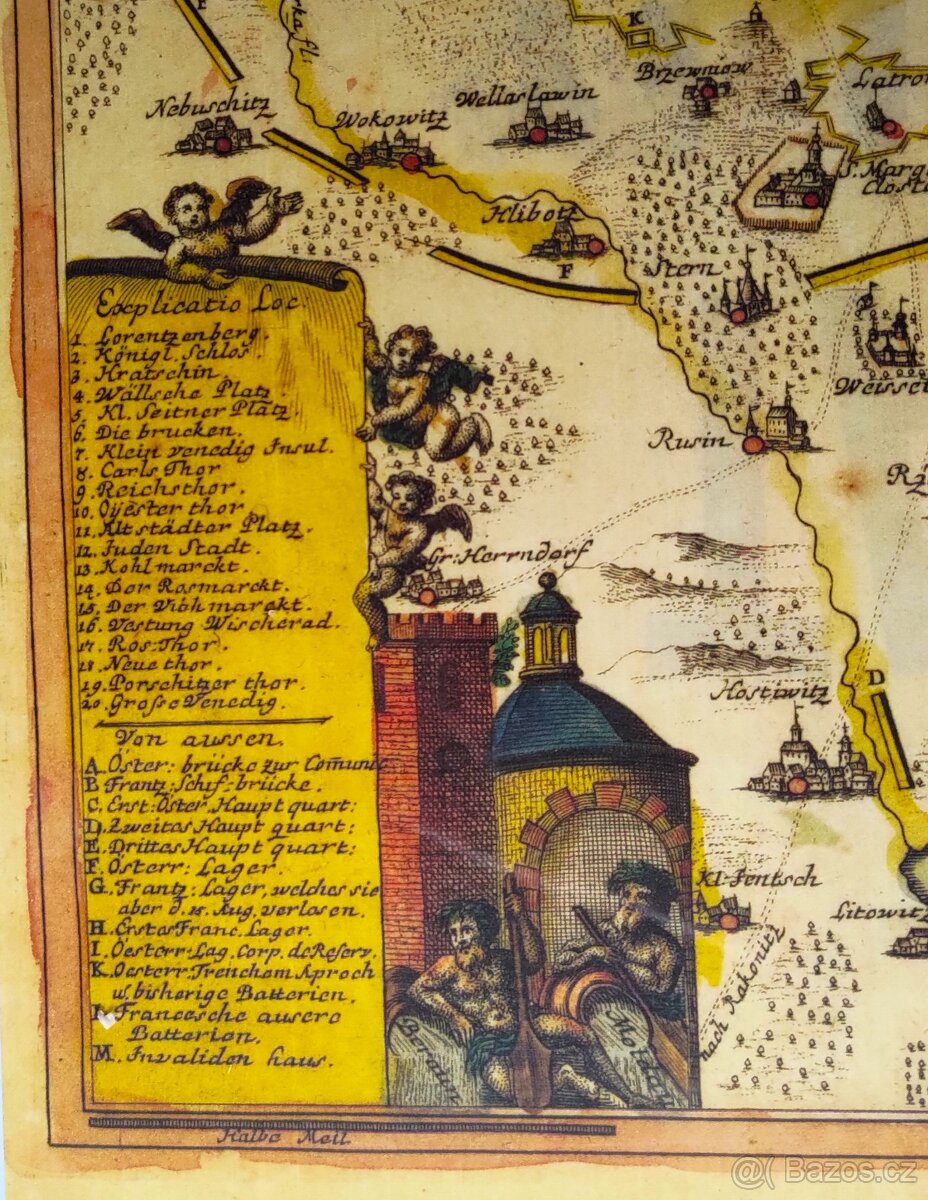 E
rka fl.
K
Brzewniow
Latro
Nebuschitz
Wokowitz
Wellaslawin
S. Marga
Closte
Hlibotz
F
Stern
Weisse
Rusin
Rz
Gr: Herrndorf
Hostiwitz
D
Kl: Jentsch
Litowitz
nach Rakonitz
Explicatio Loc
1. Lorentzenberg.
2. Königl. Schlos.
3. Hratschin.
4. Wällsche Platz.
5. Kl. Seitner Platz
6. Die brucken.
7. Klein venedig Insul.
8. Carls Thor
9. Reichsthor.
10. Oyester thor
11. Altstädter Platz.
12. Juden Stadt.
13. Kohlmarckt.
14. Der Rosmarckt.
15. Der Vihmarckt.
16. Vestung Wischerad.
17. Ros: Thor.
18. Neue thor.
19. Porschitzer thor.
20. Grose Venedig.
Von aussen.
A. Öster: brücke zur Comunic
B Frantz: Schif: brücke.
C. Erst: Öster. Haupt quart:
D. Zweites Haupt quart:
E. Drittes Haupt quart:
F. Österr: Lager.
G. Frantz: Lager, welches sie
aber d. 15. Aug. verlosen.
H. Erstes Franc. Lager.
I. Oesterr: Lag. Corp. de Reserv.
K. Oesterr: Trenchem Aproch
u. bisherige Batterien.
L. Francesche ausere
Batterien.
M. Invaliden haus.
Beraun
Moldau
Halbe Meil.
@( Bazos.cz